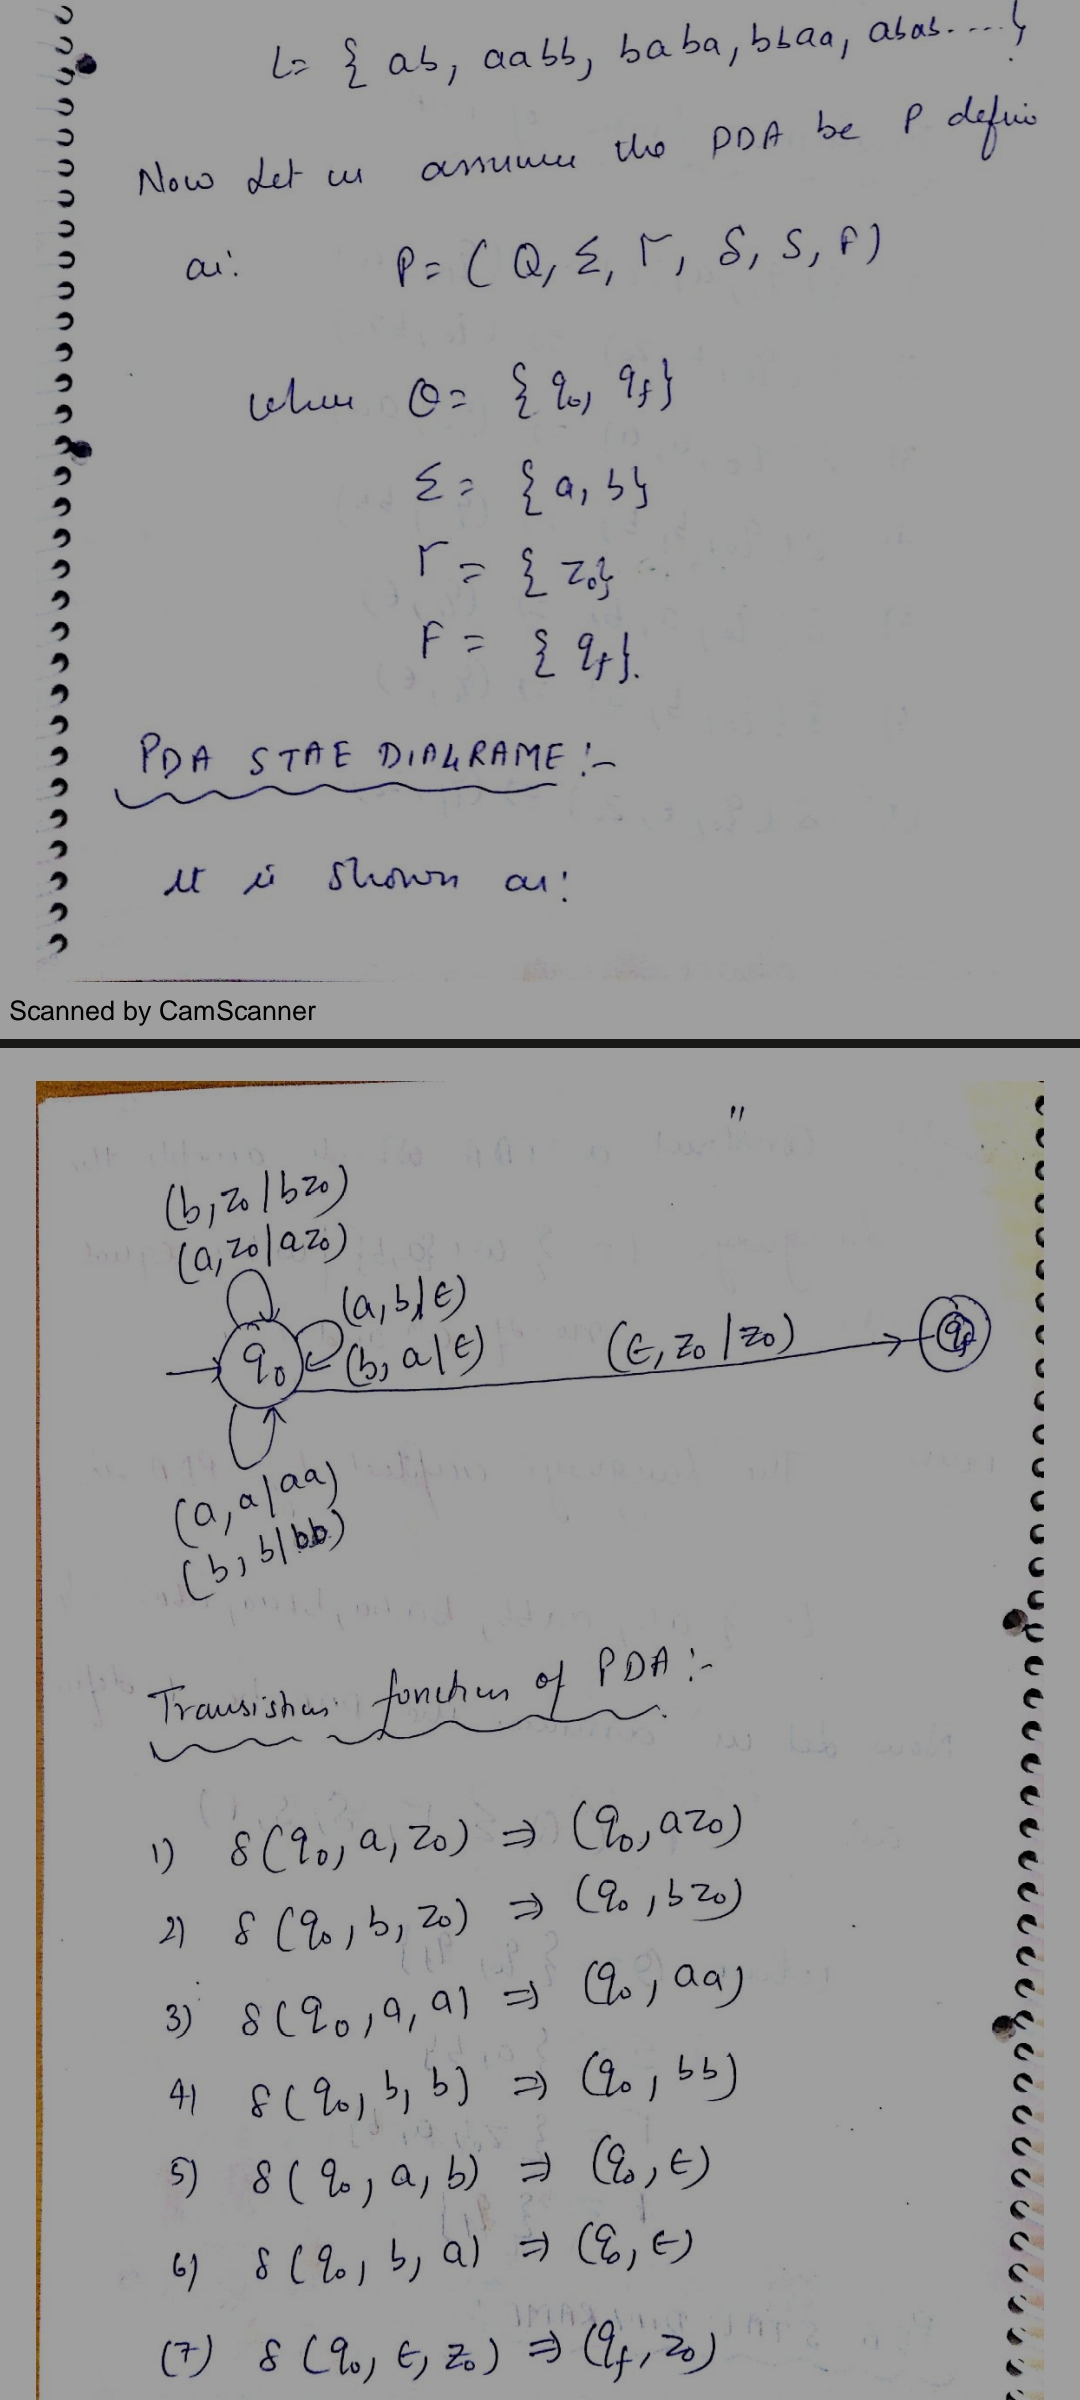 L = { ab, aabb, baba, bbaa, abab. ... }
Now Let us assume the PDA be P define
as: P = ( Q, Σ, Γ, δ, S, F )
where Q = { q0, qf }
Σ = { a, b }
Γ = { z0 }
F = { qf }.
PDA STAE DIAGRAME :-
it is shown as:
Scanned by CamScanner
"
(b, z0 | bz0)
(a, z0 | az0)
(a, b | ϵ)
(b, a | ϵ)
q0
(ϵ, z0 | z0)
qf
(a, a | aa)
(b, b | bb)
Transistion function of PDA :-
1) δ(q0, a, z0) ⇒ (q0, az0)
2) δ(q0, b, z0) ⇒ (q0, bz0)
3) δ(q0, a, a) ⇒ (q0, aa)
4) δ(q0, b, b) ⇒ (q0, bb)
5) δ(q0, a, b) ⇒ (q0, ϵ)
6) δ(q0, b, a) ⇒ (q0, ϵ)
(7) δ(q0, ϵ, z0) ⇒ (qf, z0)